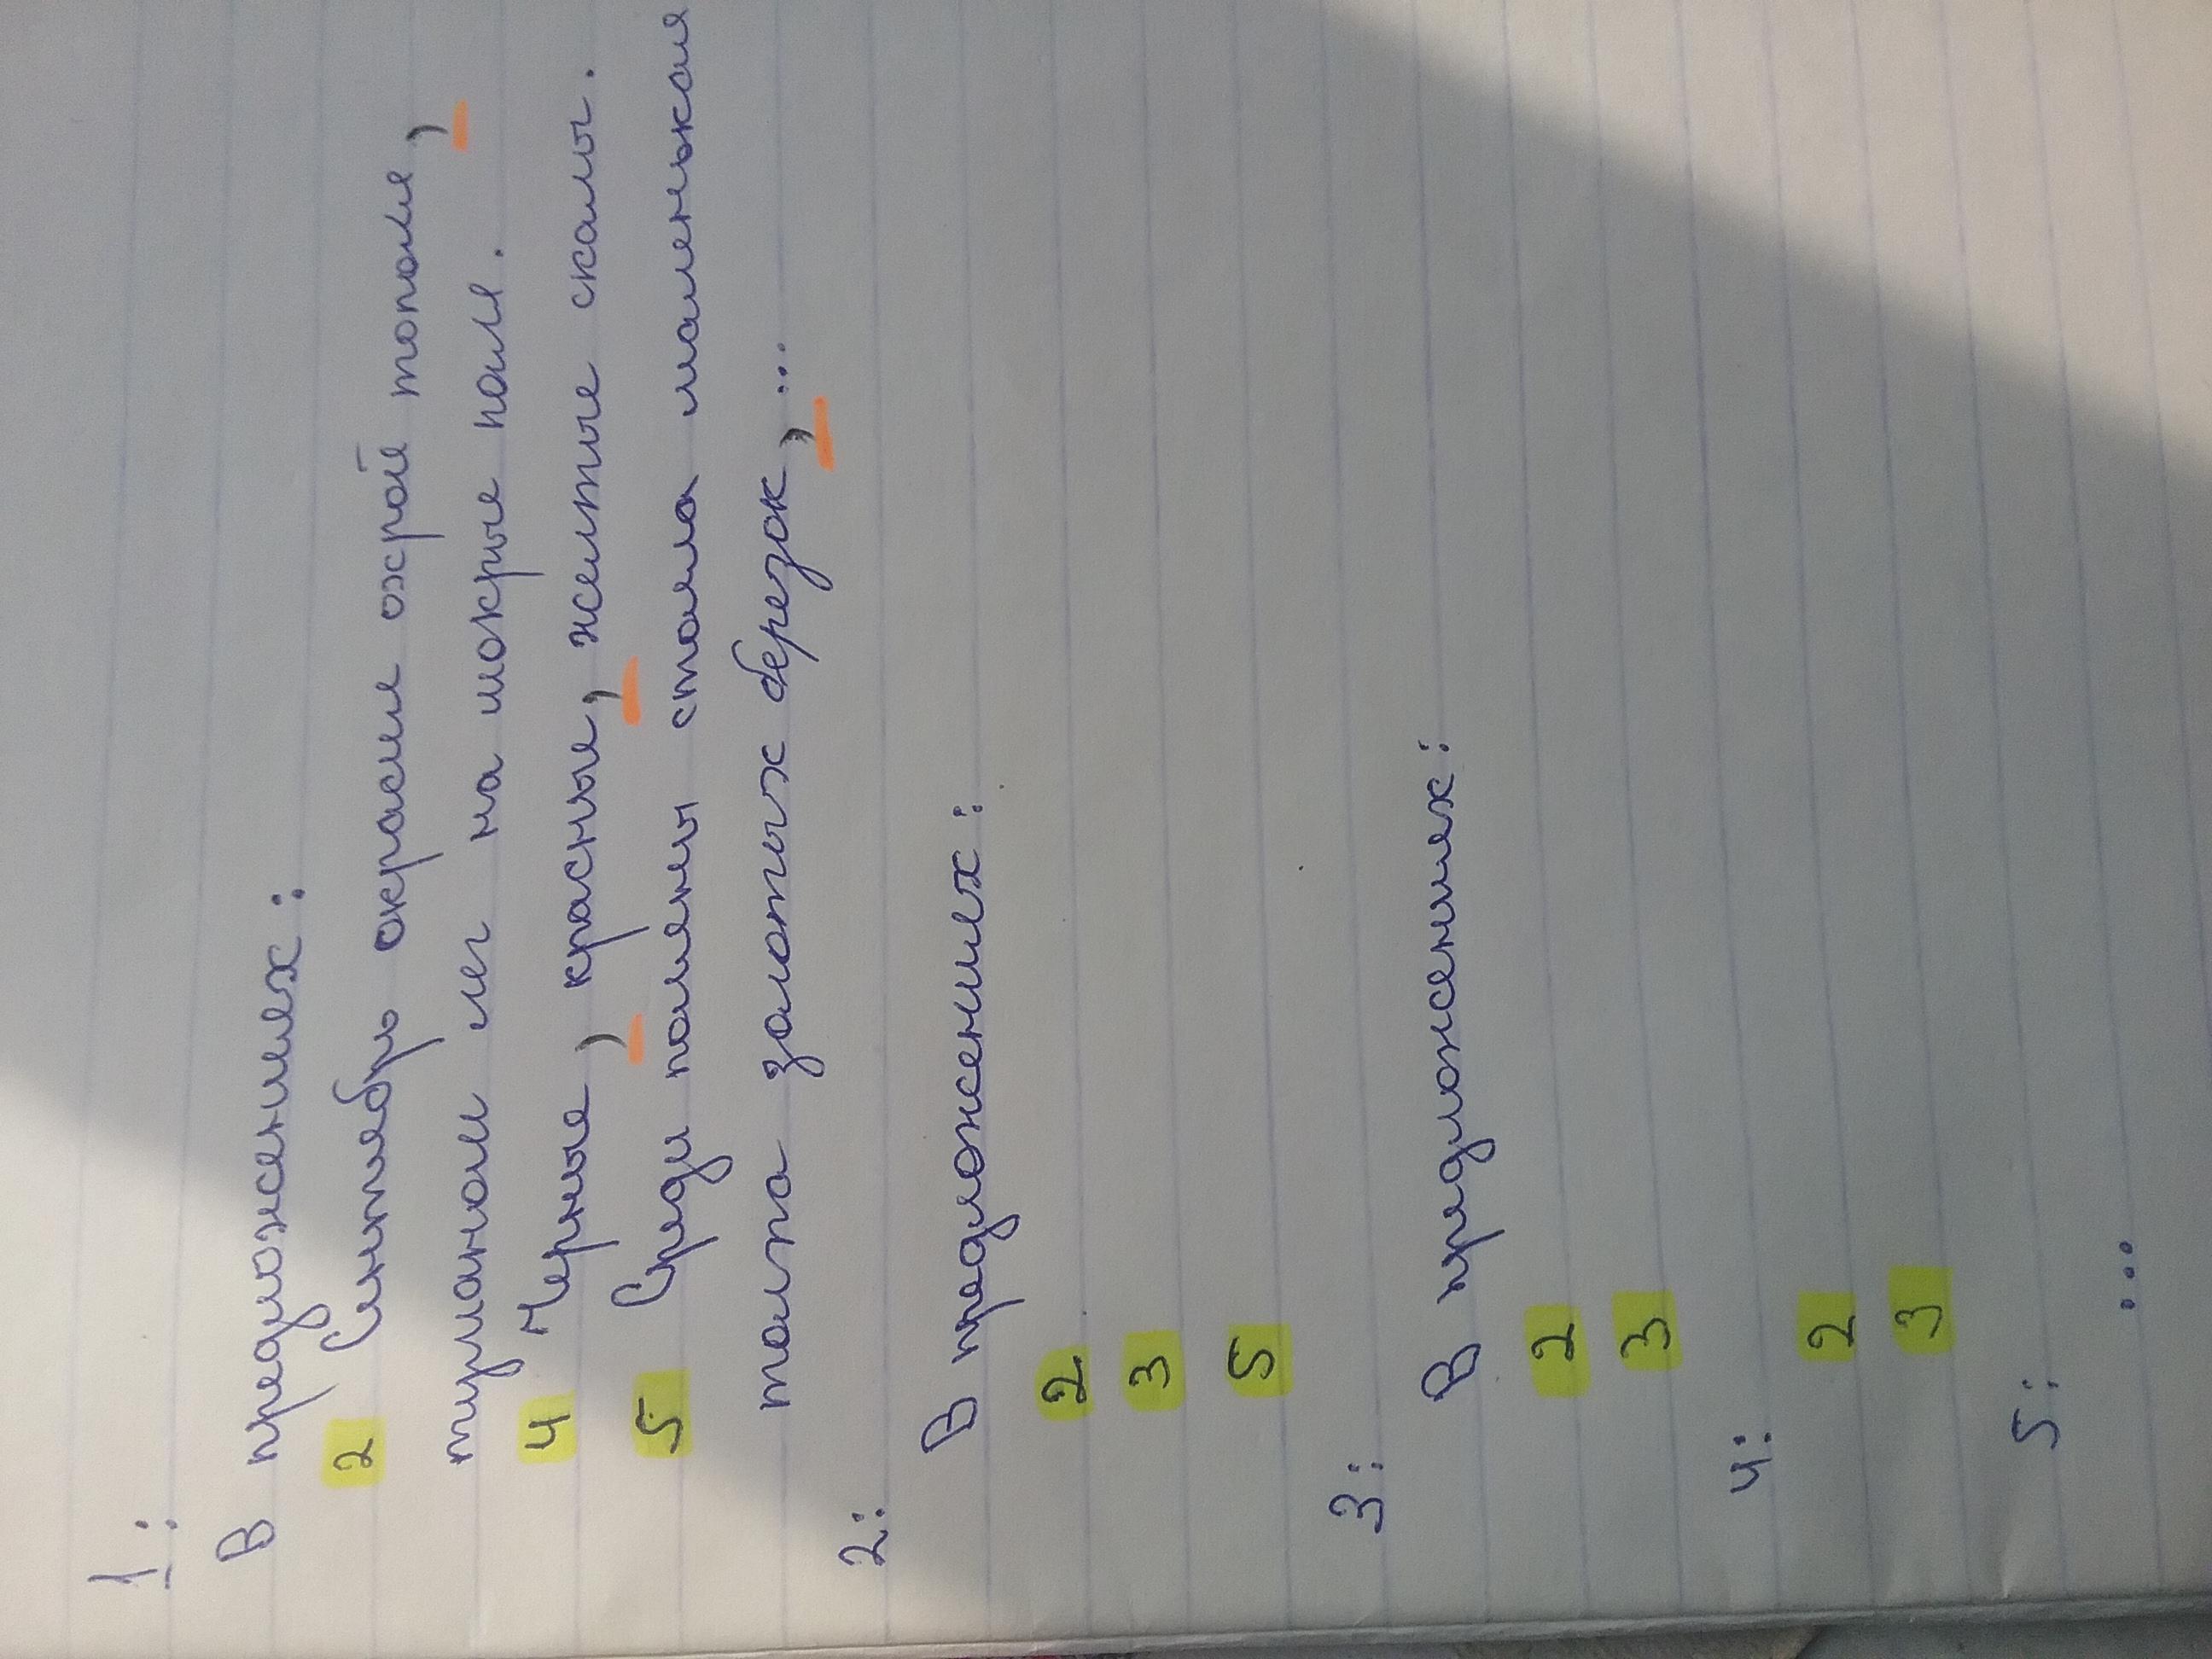 1:
В предложениях:
2 Сентябрь окрасил охрой тополя,
туманом лег на мокрые поля.
4 Черные, красные, желтые скалы.
5 Среди поляны стояла маленькая
толпа золотых березок,...
2:
В предложениях:
2
3
5
3:
В предложениях:
2
3
4:
2
3
5:
...